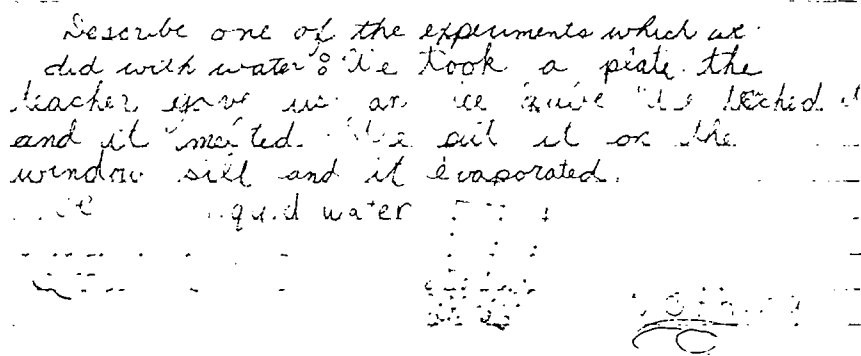 Describe one of the experiments which we
did with water: We took a plate. the
teacher gave us an ice We touched it
and it melted. We put it on the
window sill and it evaporated.
liquid water